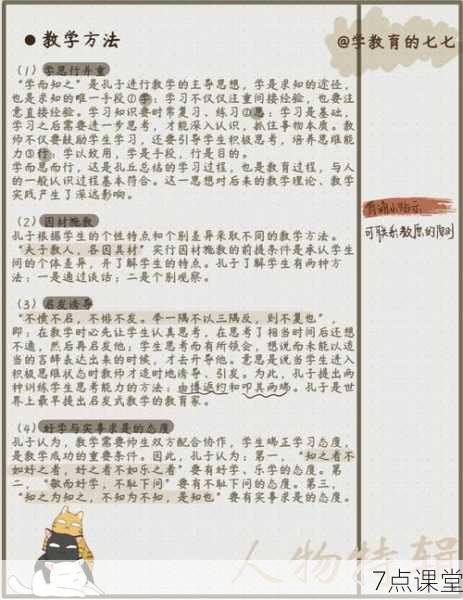 ● 教学方法
@学教育的七七
（1）学思行并重
“学而知之”是孔子进行教学的主导思想，学是求知的途径，
也是求知的唯一手段①学：学习不仅仅注重间接经验，也要注
意直接经验。学习知识要时常复习、练习②思：学习是基础，
学习之后需要进一步思考，才能深入认识，抓住事物本质。教
师不仅要鼓励学生学习，还要引导学生积极思考，培养思维能
力③行：学以致用，学是手段，行是目的。
学而思而行，这是孔丘总结的学习过程，也是教育过程，与人
的一般认识过程基本符合。这一思想对后来的教学理论、教学
实践产生了深远影响。
（2）因材施教
孔子根据学生的个性特点和个别差异采取不同的教学方法。
“夫子教人，各因其材”实行因材施教的前提条件是承认学生
间的个体差异，并了解学生的特点。孔子了解学生有两种方
法：一是通过谈话；二是个别观察。
背诵小贴示
可联系教原的原则
（3）启发诱导
“不愤不启，不悱不发。举一隅不以三隅反，则不复也”，
即：在教学时必先让学生认真思考，在思考了相当时间后还想
不通，然后再启发他；学生思考而有所领会，想说而未能以适
当的言辞表达出来的时候，才去开导他。意思是说当学生进入
积极思维状态时教师才适时地诱导、引发。为此，孔子提出两
种训练学生思考能力的方法：由博返约和叩其两端。孔子是世
界上最早提出启发式教学的教育家。
（4）好学与实事求是的态度
孔子认为，教学需要师生双方配合协作，学生端正学习态度，
是教学成功的重要条件。因此，孔子认为：第一，“知之者不
如好之者，好之者不如乐之者”要有好学、乐学的态度。第
二，“敏而好学，不耻下问”要有不耻下问的态度。第三，
“知之为知之，不知为不知，是知也”要有实事求是的态度。
人物特辑
7点课堂